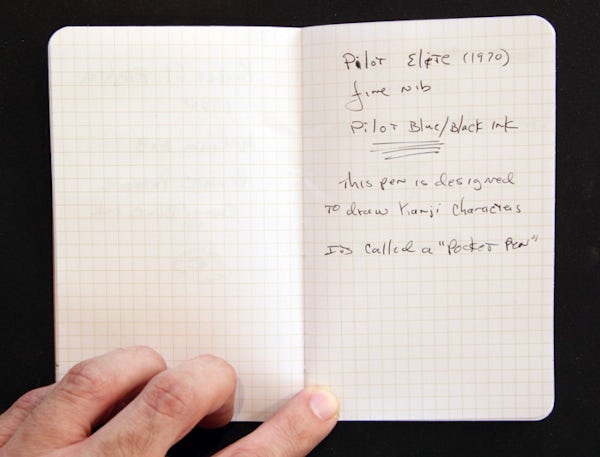 Pilot Elite (1970)
fine nib
Pilot Blue/Black Ink
This pen is designed
to draw Kanji characters
It's called a "Pocket Pen"